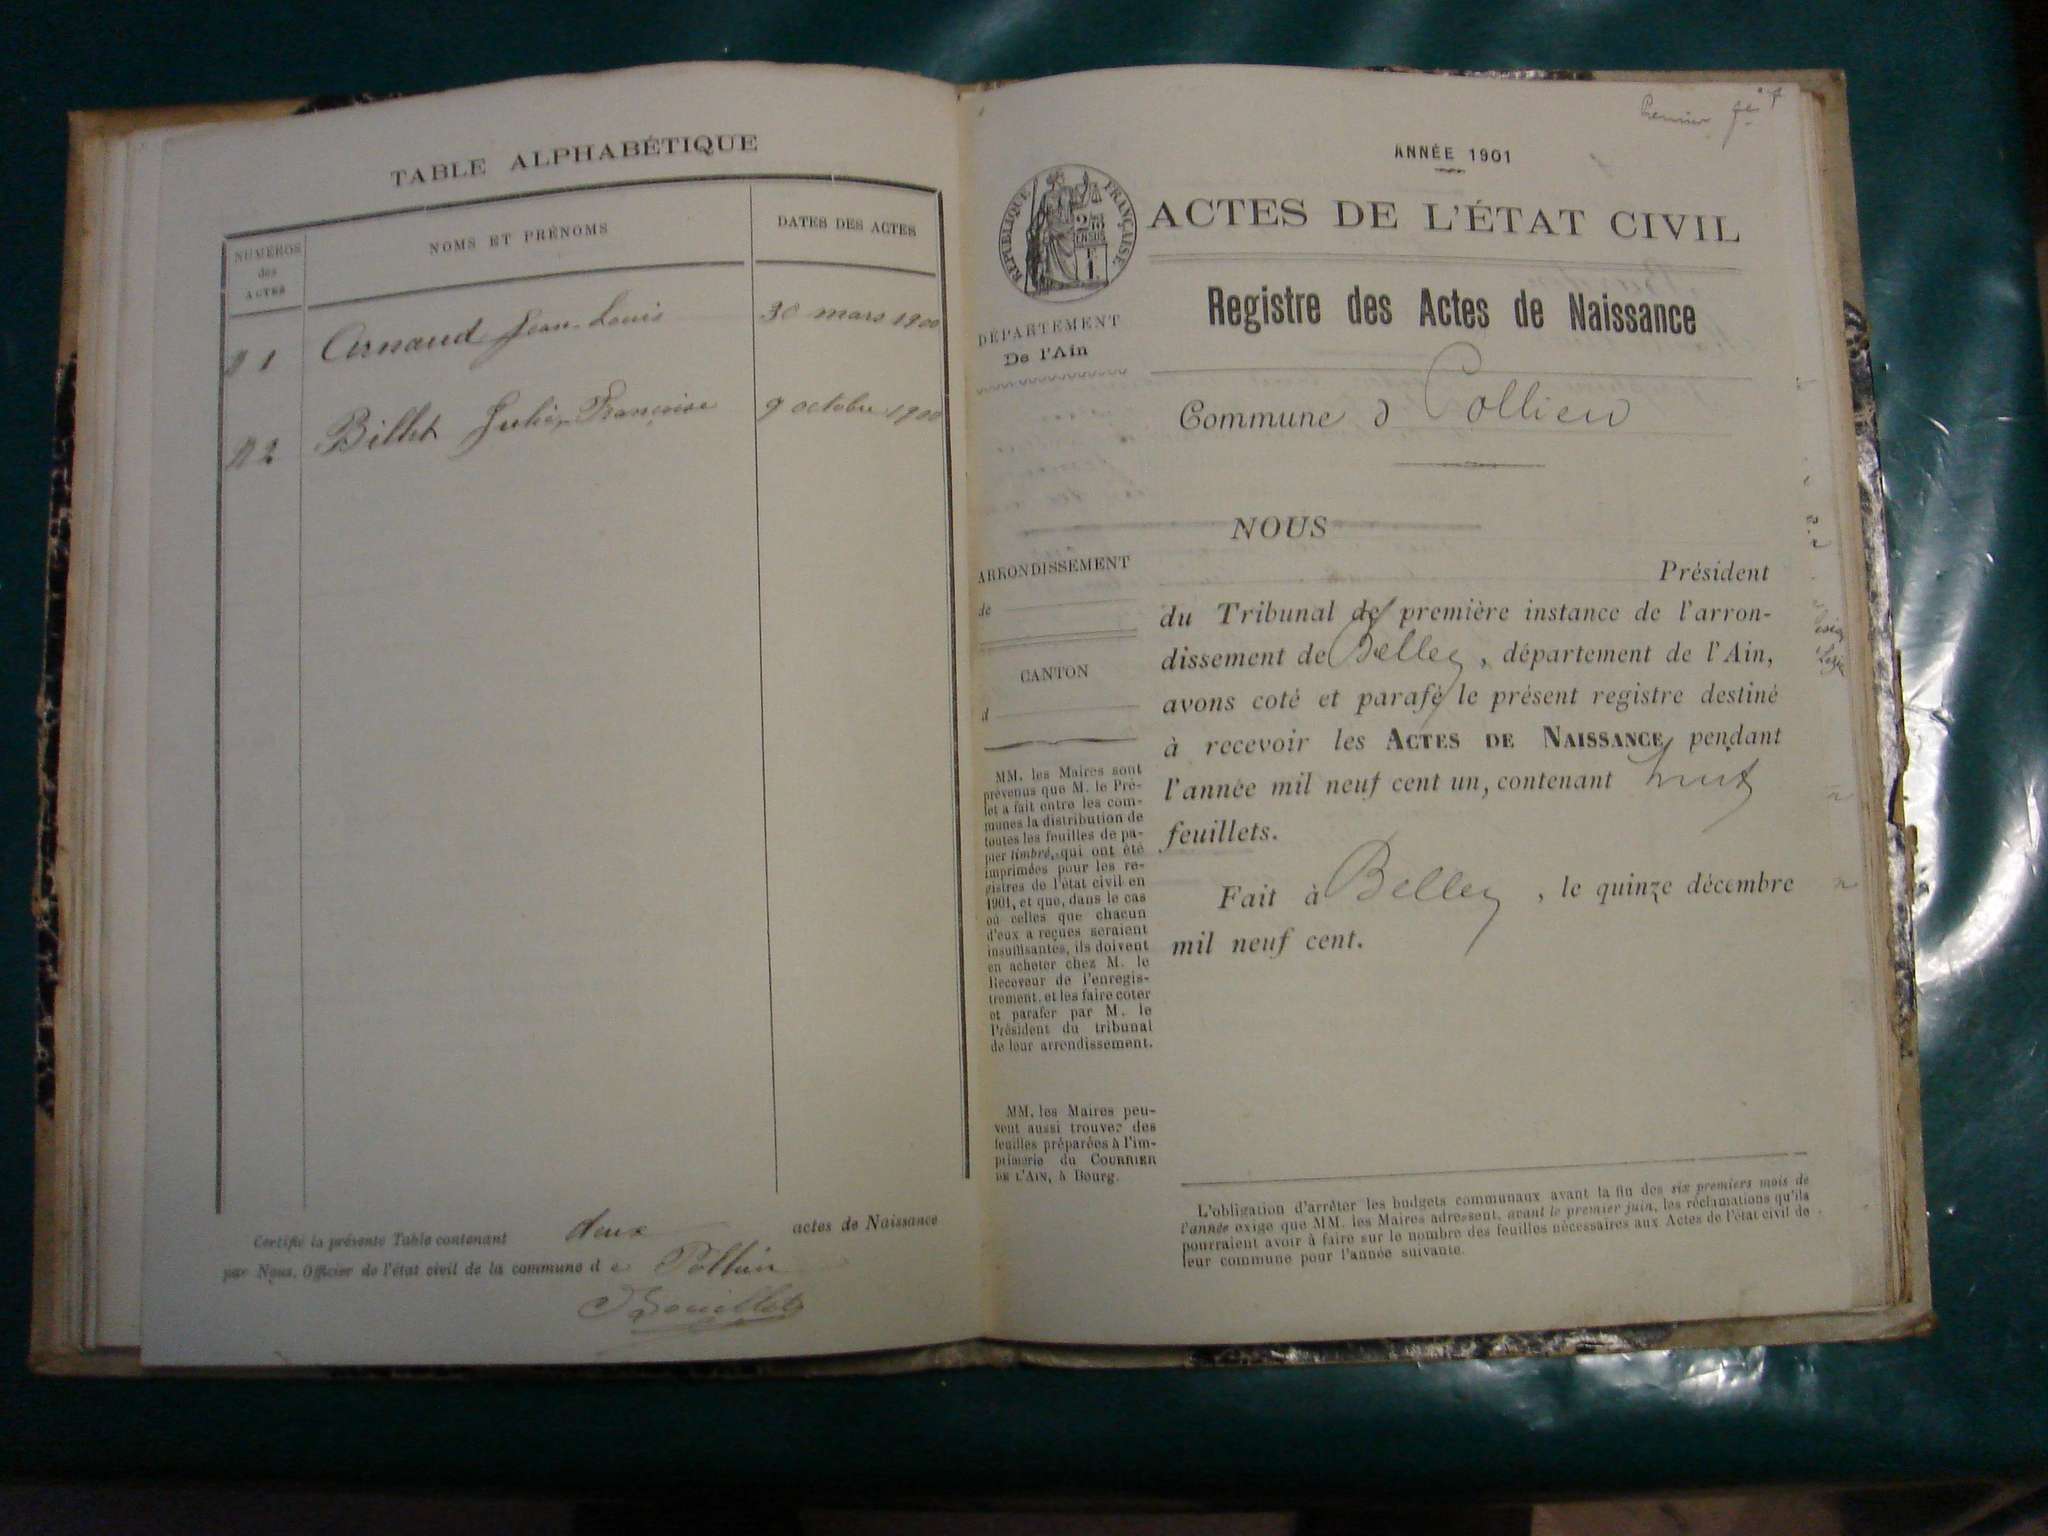 TABLE ALPHABÉTIQUE
NUMÉROS
des
ACTES
NOMS ET PRÉNOMS
DATES DES ACTES
N 1 Arnaud Jean-Louis 30 mars 1900
N 2 Billet Julie, Françoise 9 octobre 1900
Certifié la présente Table contenant deux actes de Naissance
par Nous, Officier de l'état civil de la commune d e Pollieu
Premier
ANNÉE 1901
RÉPUBLIQUE FRANÇAISE
ACTES DE L'ÉTAT CIVIL
Registre des Actes de Naissance
DÉPARTEMENT
De l'Ain
Commune d Pollieu
NOUS
Président
du Tribunal de première instance de l'arron-
dissement de Belley, département de l'Ain,
avons coté et parafé le présent registre destiné
à recevoir les ACTES DE NAISSANCE pendant
l'année mil neuf cent un, contenant huit
feuillets.
Fait à Belley, le quinze décembre
mil neuf cent.
ARRONDISSEMENT
de
CANTON
d
MM. les Maires sont
prévenus que M. le Pré-
fet a fait entre les com-
munes la distribution de
toutes les feuilles de pa-
pier timbré, qui ont été
imprimées pour les re-
gistres de l'état civil en
1901, et que, dans le cas
où celles que chacun
d'eux a reçues seraient
insuffisantes, ils doivent
en acheter chez M. le
Receveur de l'enregis-
trement, et les faire coter
et parafer par M. le
Président du tribunal
de leur arrondissement.
MM. les Maires peu-
vent aussi trouver des
feuilles préparées à l'im-
primerie du COURRIER
DE L'AIN, à Bourg.
L'obligation d'arrêter les budgets communaux avant la fin des six premiers mois de
l'année exige que MM. les Maires adressent, avant le premier juin, les réclamations qu'ils
pourraient avoir à faire sur le nombre des feuilles nécessaires aux Actes de l'état civil de
leur commune pour l'année suivante.